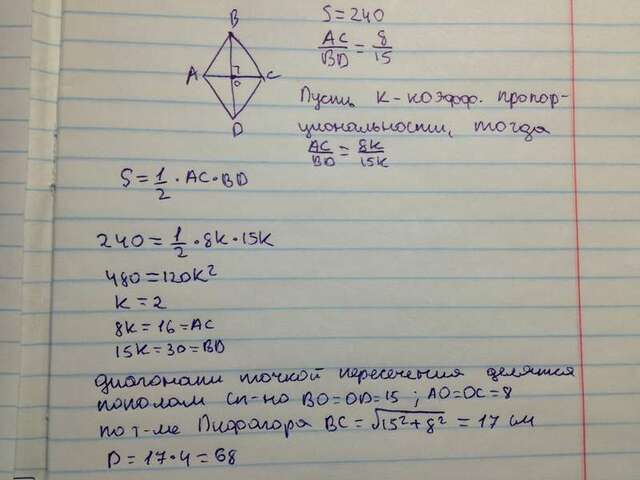 B
A
C
O
D
S=240
AC/BD = 8/15
Пусть K-коэфф. пропор-
циональности, тогда
AC/BD = 8K/15K
S=1/2·AC·BD
240=1/2·8K·15K
480=120K²
K=2
8K=16=AC
15K=30=BD
диагонали точкой пересечения делятся
пополам сл-но BO=OD=15; AO=OC=8
по т-ме Пифагора BC=√15²+8² = 17 см
P=17·4=68